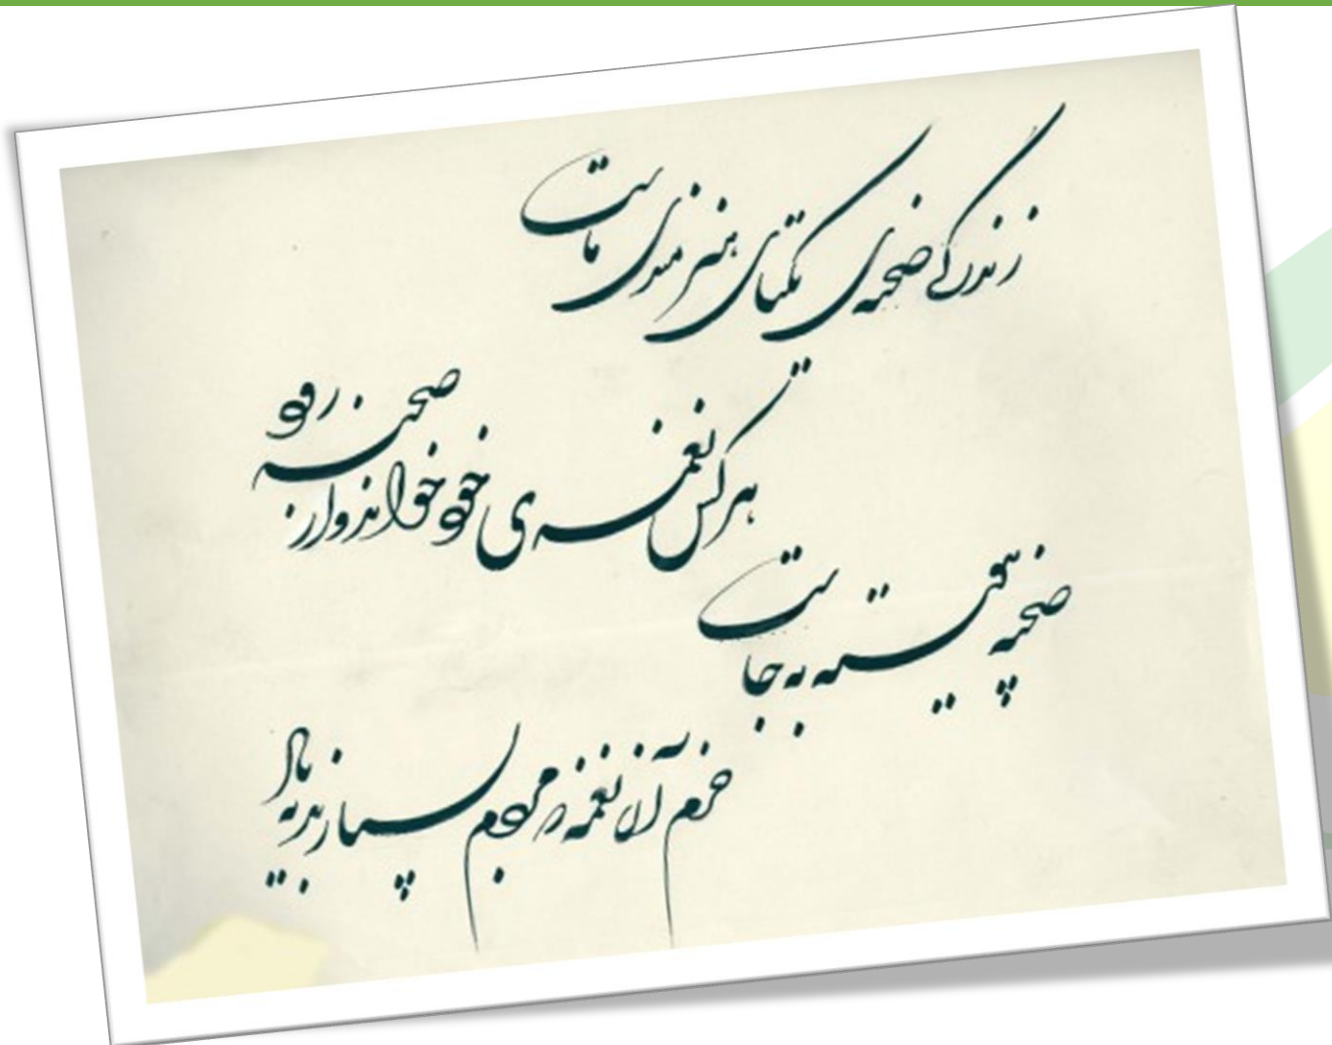 زندگی صحنه‌ی یکتای هنرمندی ماست
هر کسی نغمه‌ی خود خواند و از صحنه رود
صحنه پیوسته به جاست
خرم آن نغمه که مردم بسپارند به یاد